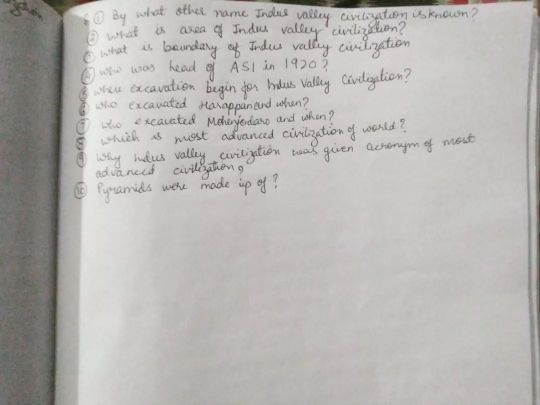 ① By what other name Indus valley civilization is known?
② What is area of Indus valley civilization?
③ What is boundary of Indus valley civilization
④ Who was head of ASI in 1920?
⑤ where excavation begin for Indus Valley Civilization?
⑥ who excavated Harappan and when?
⑦ Who excavated Mohenjodaro and when?
⑧ which is most advanced civilization of world?
⑨ Why Indus valley civilization was given acronym of most
advanced civilization?
⑩ Pyramids were made up of?